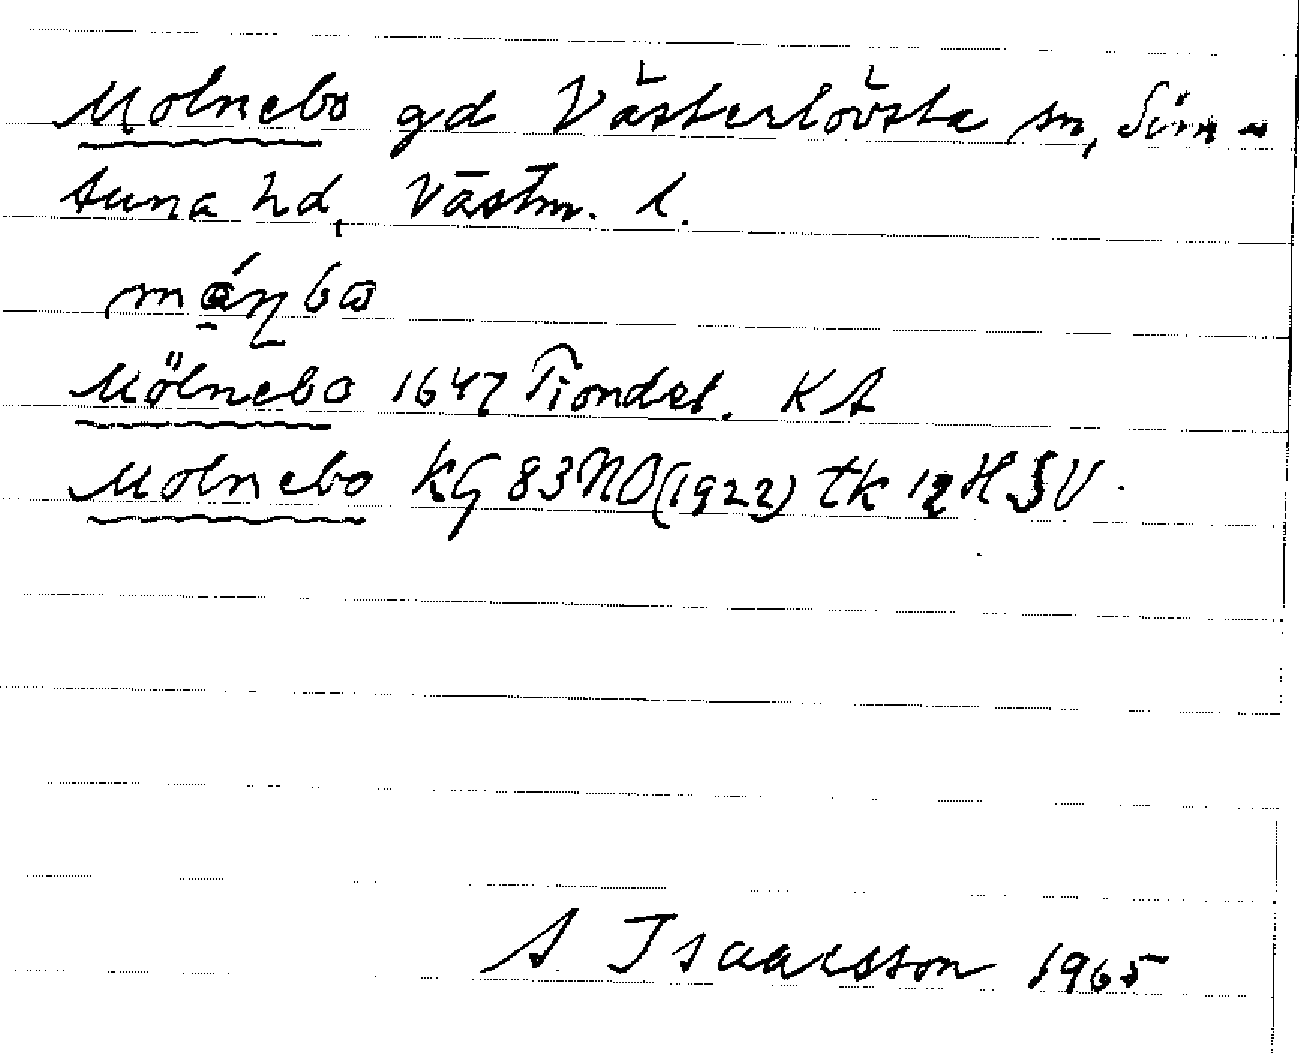 Molnebo gd Västerlövsta sn, Sim-
tuna hd, Västm. l.
Mölnebo 1647 Tiondel. KA
Molnebo KG 83NO(1922) tk 12H SV.
A Isaacsson 1965